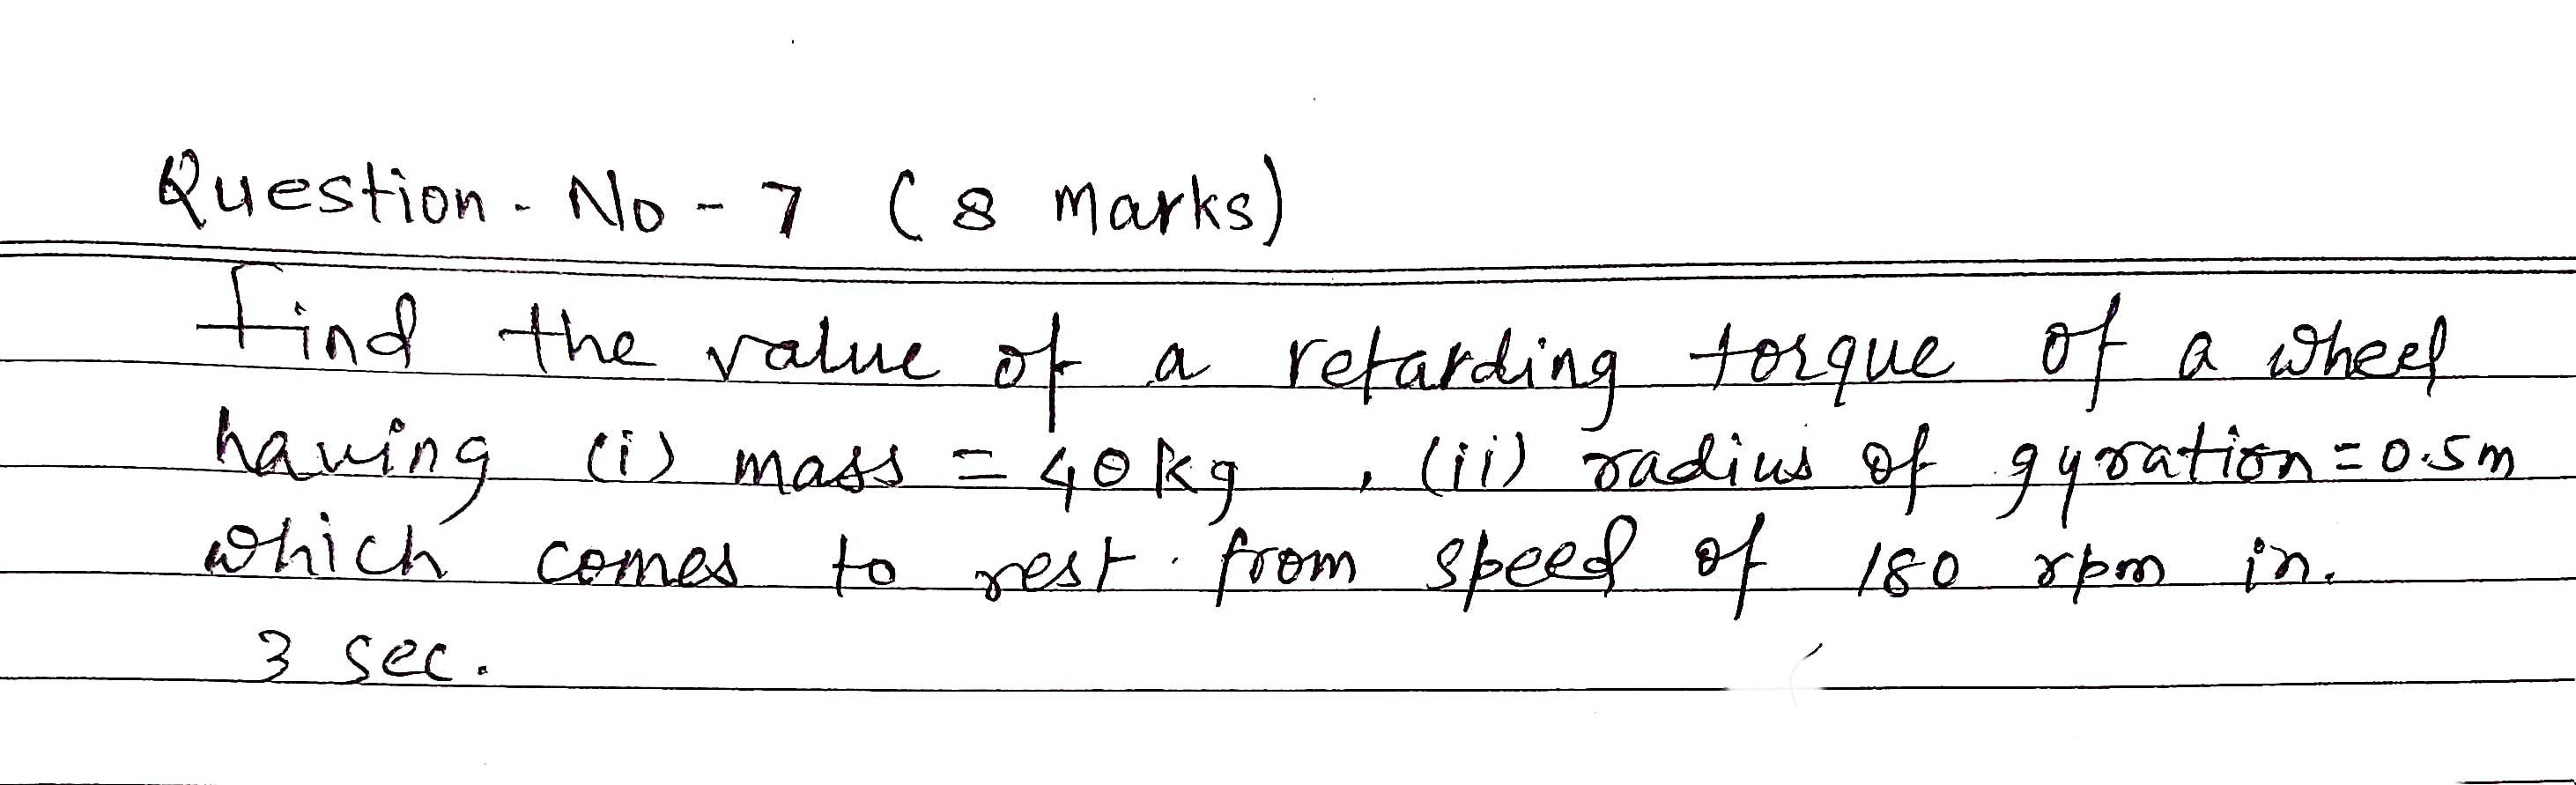 Question. No - 7 (8 Marks)
Find the value of a retarding torque of a wheel
having (i) mass = 40kg , (ii) radius of gyration = 0.5m
which comes to rest. from speed of 180 rpm in.
3 sec.